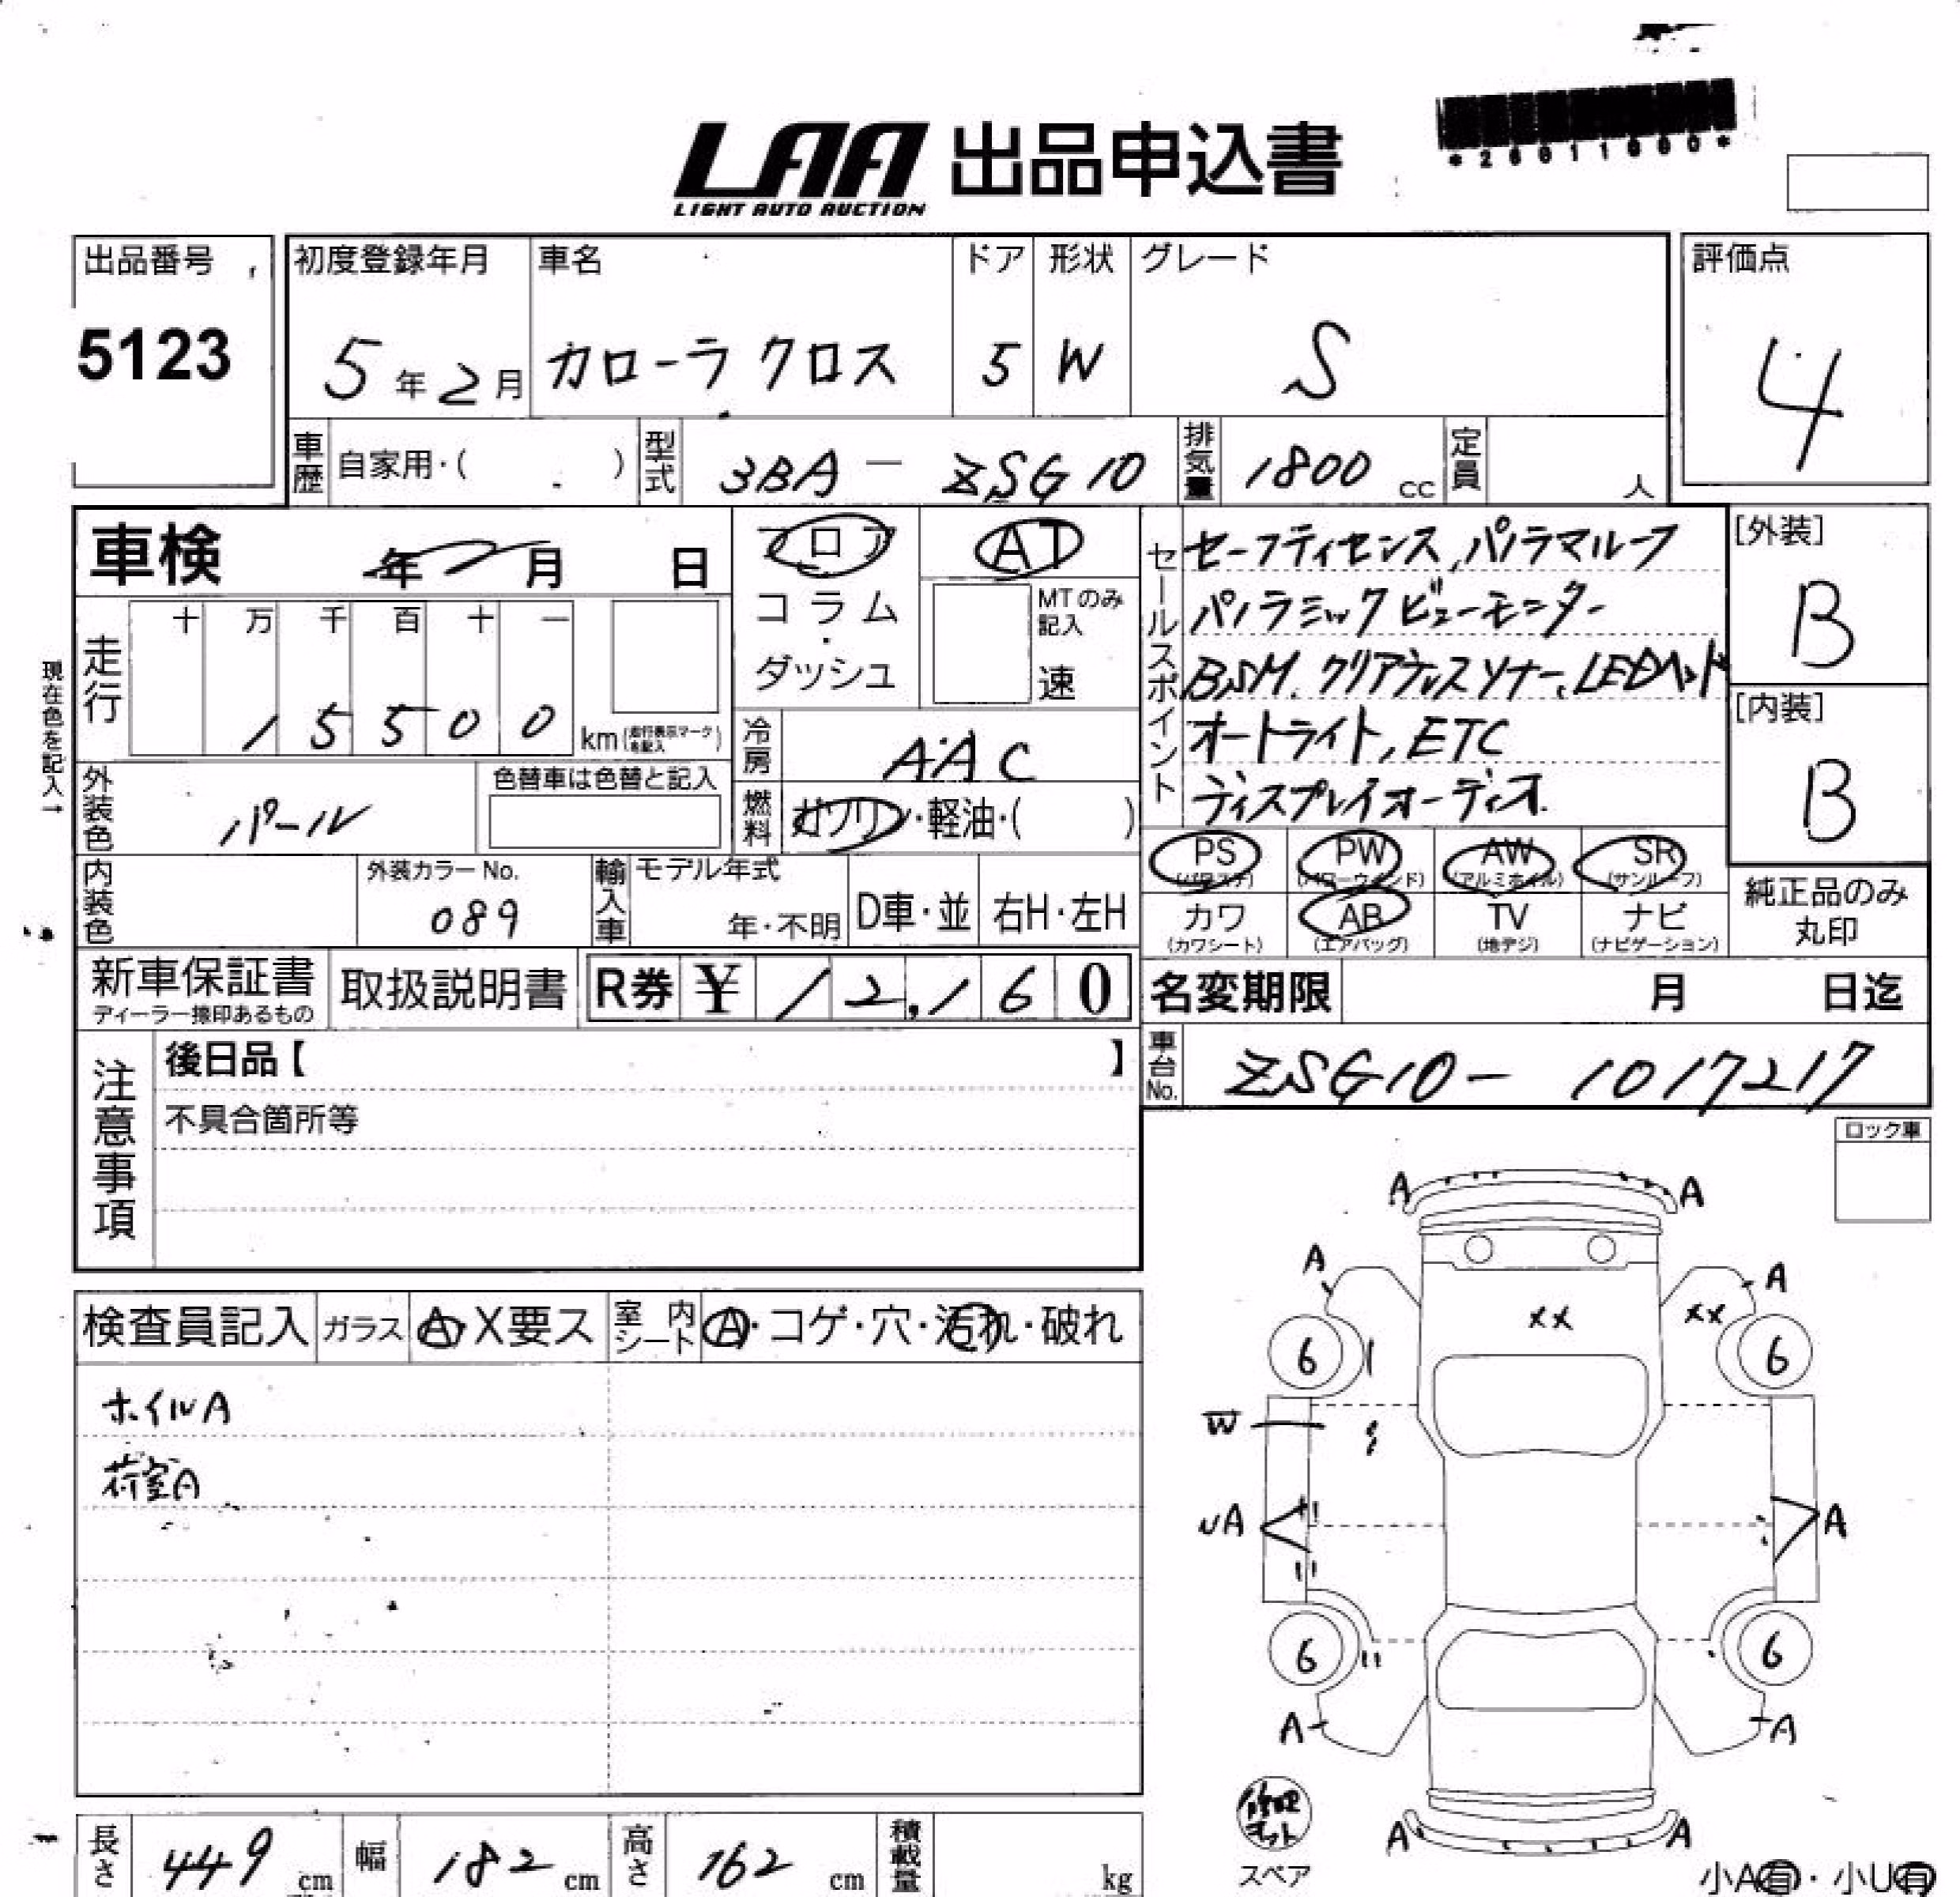 LAA 出品申込書
LIGHT AUTO AUCTION
出品番号
5123
初度登録年月
5年2月
車名
カローラ クロス
ドア
5
形状
W
グレード
S
評価点
4
車歴 自家用・( )
型式 3BA - ZSG10
排気量 1800 cc
定員 人
車検 年 月 日
フロア
コラム
ダッシュ
AT
MTのみ記入
速
走行
十 万 千 百 十 一
1 5 5 0 0 km
現在色を記入→
冷房 AAC
燃料 ガソリン・軽油・( )
外装色 パール
色替車は色替と記入
内装色
外装カラーNo.
089
輸入車
モデル年式
年・不明
D車・並
右H・左H
セールスポイント
セーフティセンス, パノラマルーフ
パノラミックビューモニター
BSM. クリアランスソナー. LEDヘッド
オートライト, ETC
ディスプレイオーディオ.
[外装]
B
[内装]
B
PS (パワステ) PW (パワーウインド) AW (アルミホイル) SR (サンルーフ)
カワ (カワシート) AB (エアバッグ) TV (地デジ) ナビ (ナビゲーション)
純正品のみ
丸印
新車保証書
ディーラー捺印あるもの
取扱説明書
R券 ¥ 12,160
名変期限 月 日迄
車台No. ZSG10- 1017217
注意事項
後日品【 】
不具合箇所等
ロック車
検査員記入 ガラス A・X要ス 室内シート A・コゲ・穴・汚れ・破れ
ホイルA
荷室A
A A
A A
XX XX
6 6
W
UA A
6 6
A A
修理キット
スペア
A A
小A有・小U有
長さ 449 cm
幅 182 cm
高さ 162 cm
積載量 kg